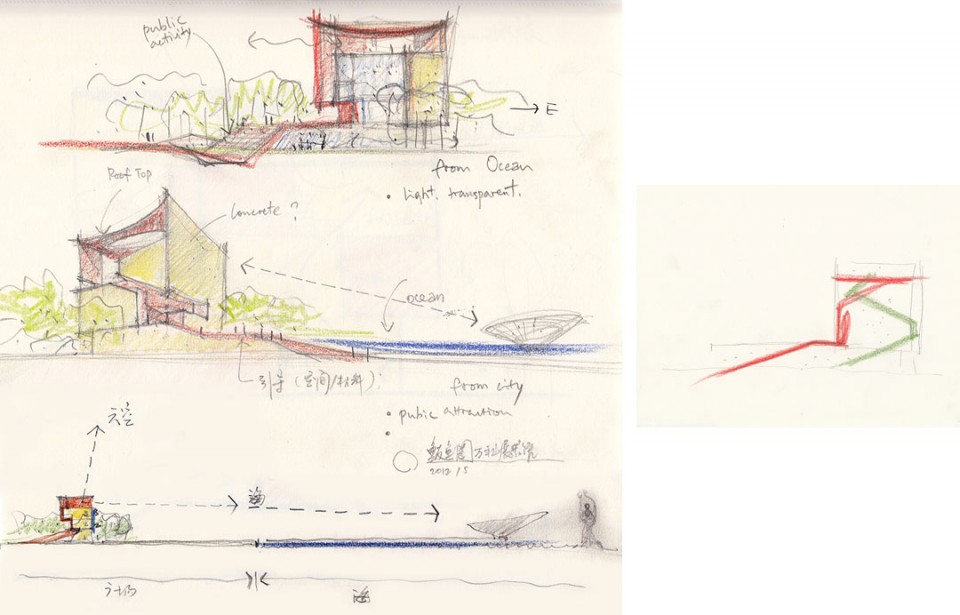 public
activity
E
from Ocean
• light. transparent.
Roof Top
concrete ?
ocean
引导 (空间/材料):
from city
• pubic attraction
•
鲅鱼圈万科展示馆
2012/5
天空
海
广场
海